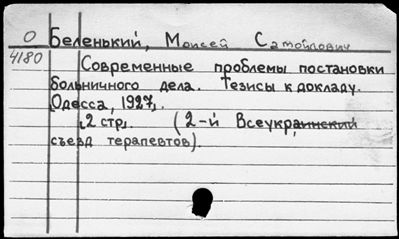 О Беленький, Моисей Самойлович
4180 Современные проблемы постановки
больничного дела. Тезисы к докладу.
Одесса, 1927.
2 стр. (2-й Всеукраинский
съезд терапевтов).